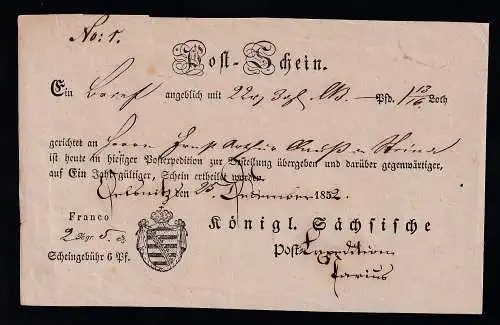 No: 1.
Post-Schein.
Ein Brief angeblich mit 22 Pfd. 1 13/16 Loth
gerichtet an Herrn Ernst Arthur in
ist heute in hiesiger Postexpedition zur Bestellung übergeben und darüber gegenwärtiger,
auf Ein Jahr gültiger, Schein ertheilt worden.
den 25. December 1852.
Franco
2 Ngr. 5 Pf.
Scheingebühr 6 Pf.
Königl. Sächsische
Post Expedition